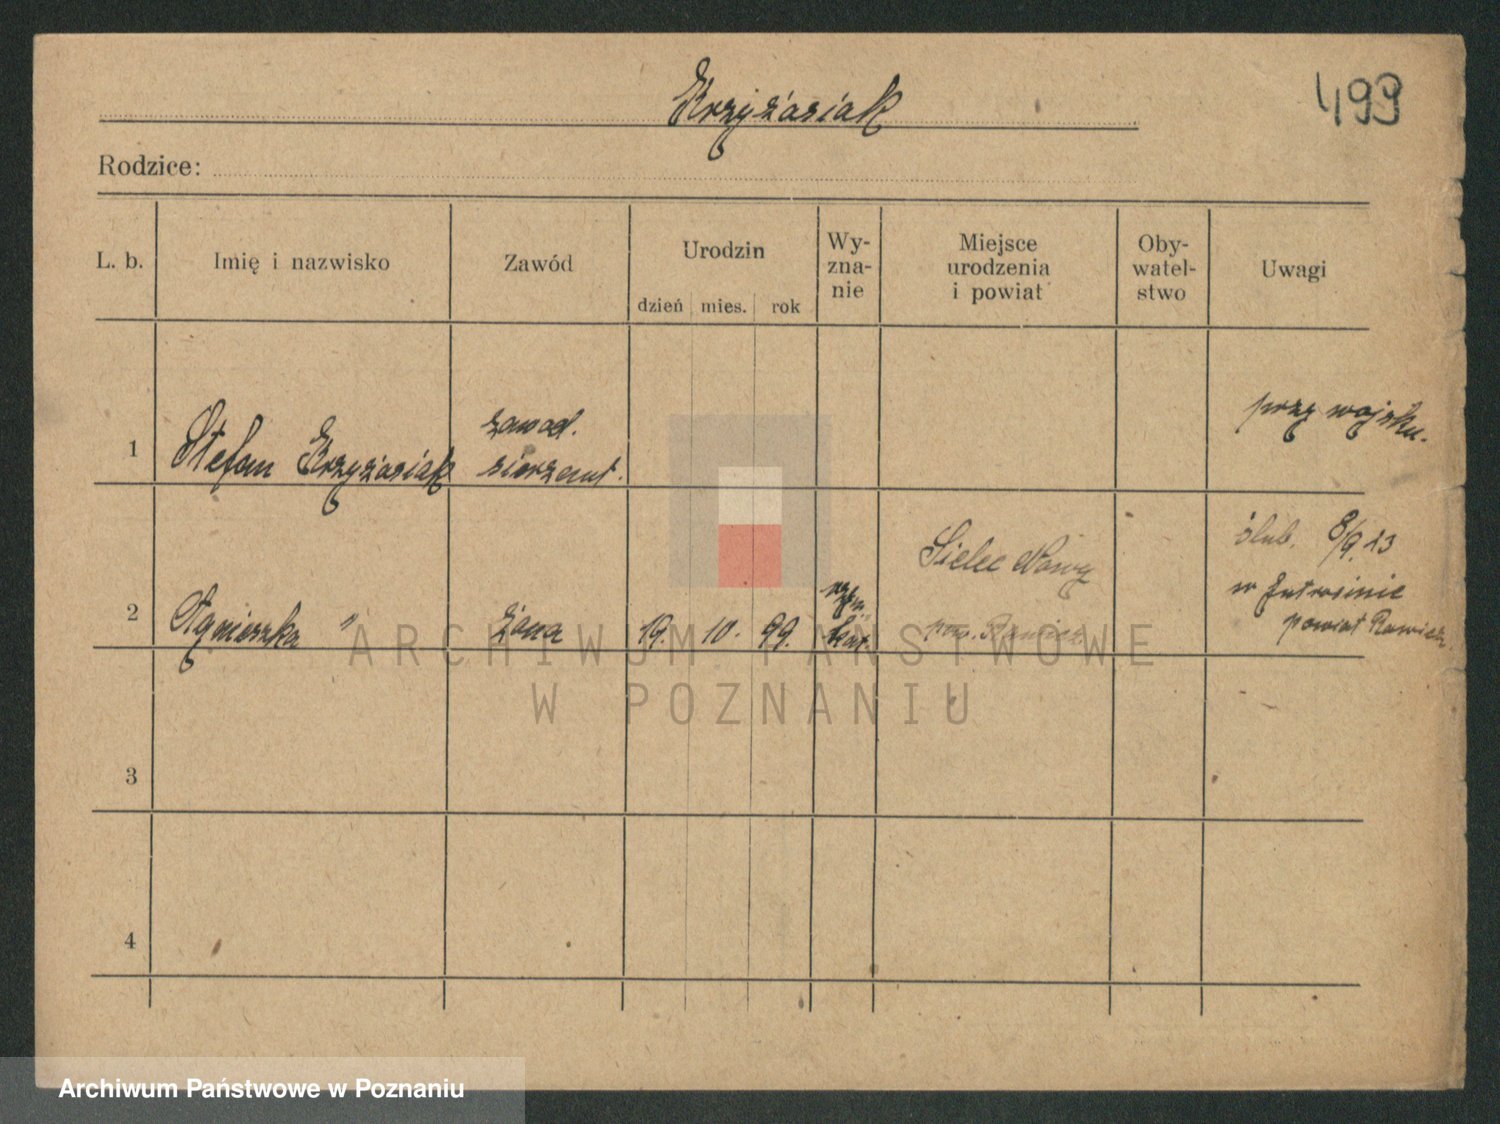 Krzyżasiak
499
Rodzice:
L. b.
Imię i nazwisko
Zawód
Urodzin
dzień
mies.
rok
Wy-
zna-
nie
Miejsce
urodzenia
i powiat
Oby-
watel-
stwo
Uwagi
1
Stefan Krzyżasiak
zawod.
sierżant.
przy wojsku.
2
Agnieszka "
żona
19.
10.
99.
rzym.
kat.
Sielec Nowy
pow. Rawicz
ślub. 8/9.23
w Jutrosinie
powiat Rawicz.
3
4
ARCHIWUM PAŃSTWOWE
W POZNANIU
Archiwum Państwowe w Poznaniu